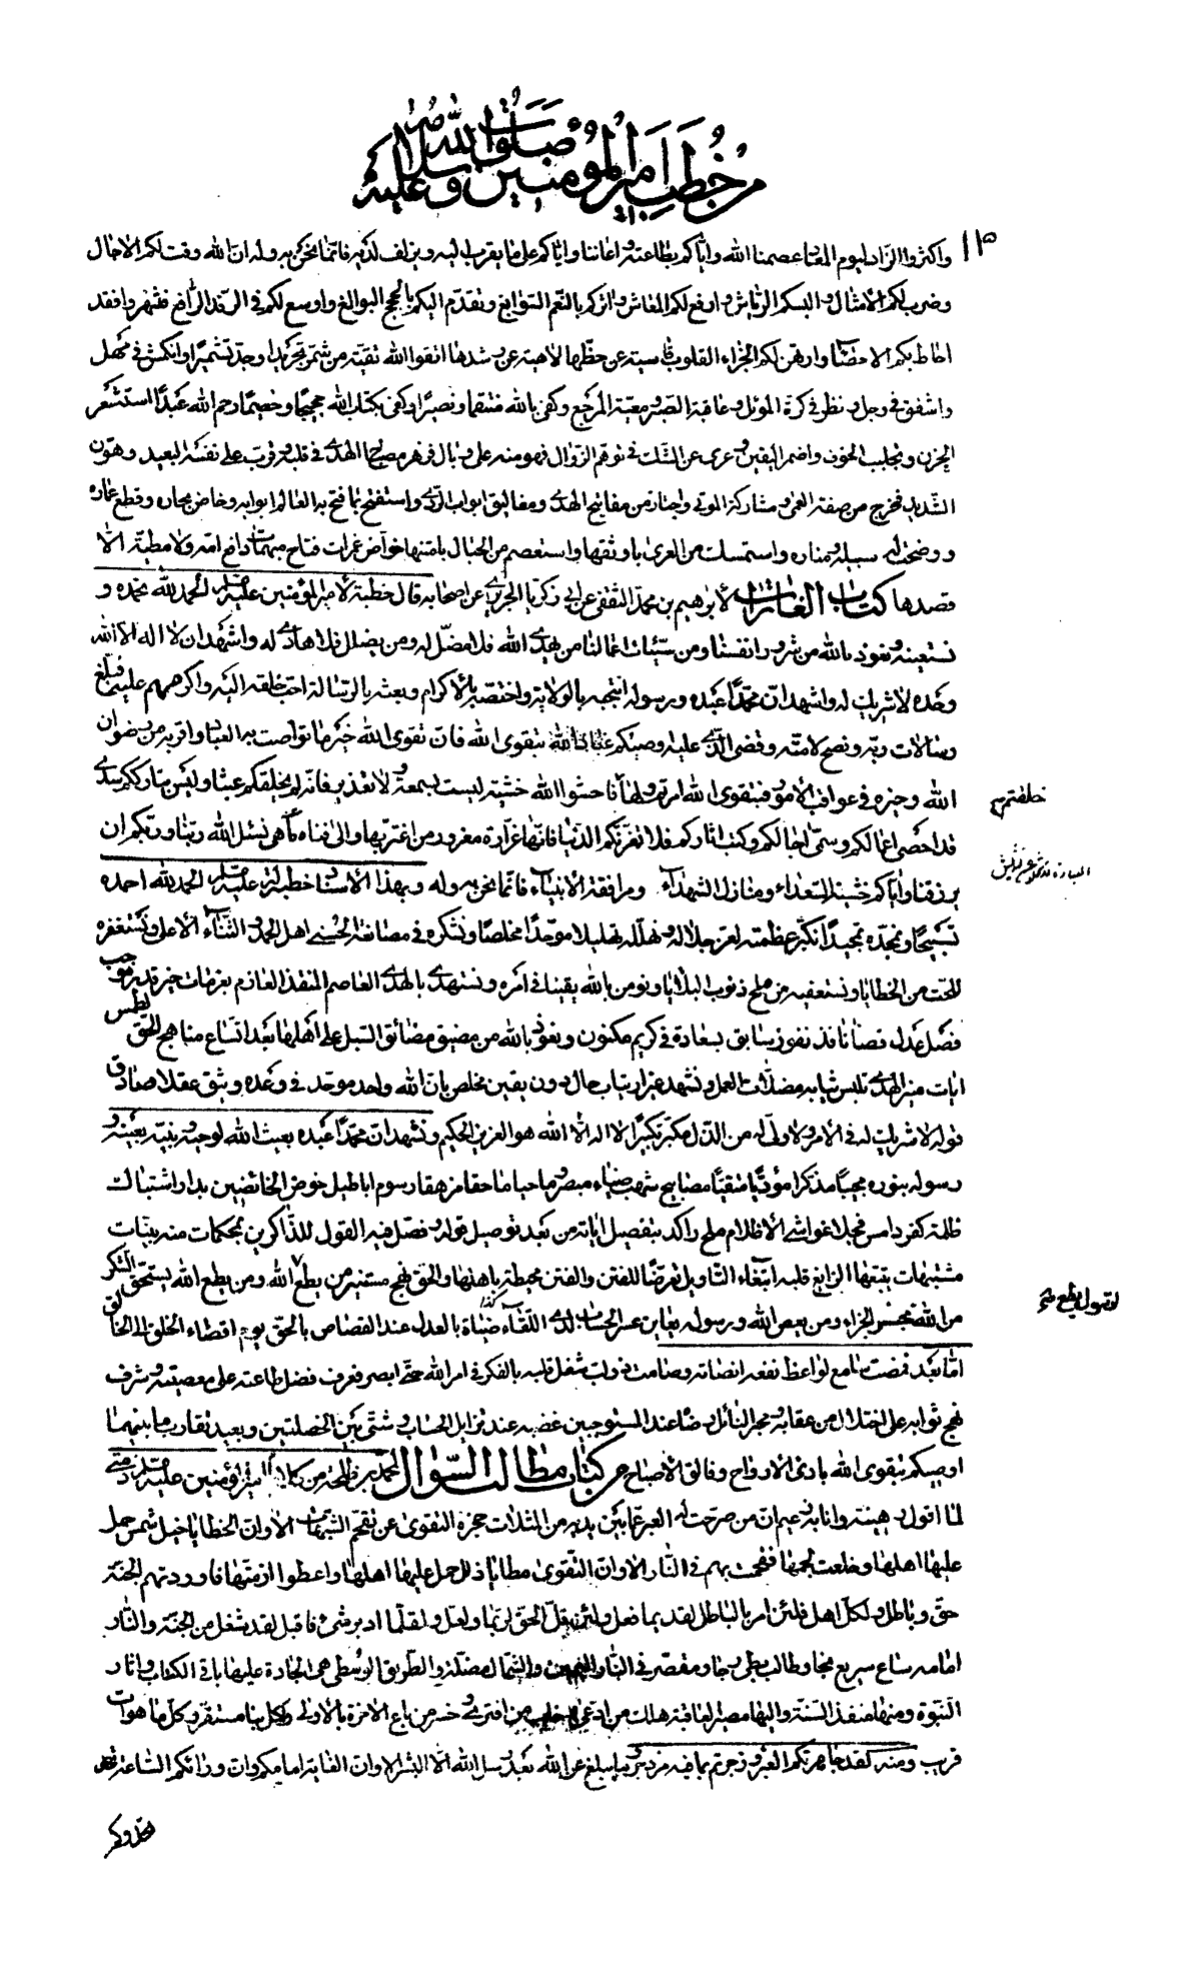 من خطب امير المؤمنين صلوات الله وسلامه عليه
١١٣
واكثروا الزاد ليوم المعاد عصمنا الله واياكم بطاعته واعاننا واياكم على ما يقرب اليه ويزلف لديه فانما نحن به وله ان الله وقت لكم الاجال
وضرب لكم الامثال والبسكم الرياش وارفغ لكم المعاش واثركم بالنعم السوابغ وتقدم اليكم بالحجج البوالغ واوسع لكم في الرفد الرافغ فتشمروا فقد
احاط بكم الاحصاء وارتهن لكم الجزاء القلوب قاسية عن حظها لاهية عن رشدها اتقوا الله تقية من شمر تجريدا وجد تشميرا وانكمش في مهل
واشفق في وجل ونظر في كرة الموئل وعاقبة الصبر ومغبة المرجع وكفى بالله منتقما ونصيرا وكفى بكتاب الله حجيجا وخصيما رحم الله عبدا استشعر
الحزن وتجلبب الخوف واضمر اليقين وعرى عن الشك في توهم الزوال فهو منه على وبال فزهر مصباح الهدى في قلبه وقرب على نفسه البعيد وهون
الشديد فخرج من صفة العمى ومشاركة الموتى واختار من مفاتيح الهدى ومغاليق ابواب الردى واستفتح بما فتح به العالم ابوابه وخاض بحاره وقطع غماره
ووضحت له سبيله ومناره واستمسك من العرى باوثقها واستعصم من الحبال بامتنها خواض غمرات فتاح مبهمات دافع ولا مطية الا
قصدها كتاب الغارات لابرهيم بن محمد الثقفي عن ابي زكريا الجريري عن اصحابه قال خطبة لامير المؤمنين عليه السلام الحمد لله نحمده و
نستعينه ونعوذ بالله من شرور انفسنا ومن سيئات اعمالنا من يهدى الله فلا مضل له ومن يضلل فلا هادى له واشهد ان لا اله الا الله
وحده لا شريك له واشهد ان محمدا عبده ورسوله انتجبه بالولاية واختصه بالاكرام وبعثه بالرسالة احب خلقه اليه واكرمهم عليه فبلغ
رسالات ربه ونصح لامته وقضى الذى عليه اوصيكم عباد الله بتقوى الله فان تقوى الله خير ما تواصت به العباد واقربه من رضوان
الله وخيره في عواقب الامور فبتقوى الله امرتم ولها فاخشوا الله خشية ليست بسمعة ولا تعذير فانه لم يخلقكم عبثا وليس بتارككم سدى
خلقتم
قد احصى اعمالكم وسمى اجالكم وكتب اثاركم فلا تغرنكم الدنيا فانها غرارة مغرور من اغتر بها والى فناء ما هى نسئل الله ربنا وربكم ان
يرزقنا واياكم خشية السعداء ومنازل الشهداء ومرافقة الانبياء فانما نحن به وله وبهذا الاسناد خطبة له عليه السلام الحمد لله احمده
تسبيحا ونمجده تمجيدا نكبر عظمته لعز جلاله ونهلله تهليلا موحدا مخلصا ونشكره في مصانعه الحسنى اهل الحمد والثناء الاعلى ونستغفره
للحت من الخطايا ونستعفيه من ذنوب البلايا ونومن بالله يقينا في امره ونستهدى بالهدى العاصم المنقذ العازم بعزمات خير قدير موجب
فصل عدل قضاء نافذ بفوز سابق بسعادة في كريم مكنون ونعوذ بالله من مضيق مضائق السبل على اهلها بعد اتساع مناهج الحق لطمس
ايات منير الهدى تلبس ثياب مضلات العمل ونشهد غير ارتياب حال دون يقين مخلص بان الله واحد موحد في وعده وثيق عقده صادق
قوله لا شريك له في الامر ولا ولى له من الذل مكبر تكبيرا لا اله الا الله هو العزيز الحكيم ونشهد ان محمدا عبده بعيث الله لوحيه ونبيه بعينه و
رسوله بنوره مجيبا مذكرا مؤديا مبقيا مصابيح شهب ضياء مبصر وماحيا ماحقا مزهقا رسوم اباطيل خوض الخائضين بدار اشتباك
ظلمة كفر دامس فجلا غواشى الاظلام راكد بتفصيل اياته من بعد توصيل قوله وفصل فيه القول للذاكرين بمحكمات منه بينات
مشتبهات يتبعها الزايغ قلبه ابتغاء التاويل تعرضا للفتن والفتن محيطة باهلها والحق نهج مستنير من يطع الله ومن يطع الله يستحق الشكر
من الله بحسن الجزاء ومن يعص الله ورسوله يعاين عسر الحساب لدى اللقاء قضاء بالعدل عند القصاص بالحق يوم افضاء الخلق الى الخالق
اما بعد فمنصت سامع لواعظ نفعه انصاته وصامت ذو لب شغل قلبه بالفكر في امر الله حتى ابصر فعرف فضل طاعته على معصيته وشرف
نهج ثوابه على اختلال من عقابه ومخبر النائل رضاه عند المستوجبين غضبه عند تزايل الحساب وشتى بين الخصلتين وبعيد تقارب ما بينهما
اوصيكم بتقوى الله بارئ الارواح وفالق الاصباح من كتاب مطالب السؤال لمحمد بن طلحة من كلام امير المؤمنين عليه السلام ذمتى
لما اقول رهينة وانا به زعيم ان من صرحت له العبر عما بين يديه من المثلات حجزه التقوى عن تقحم الشبهات الا وان الخطايا خيل شمس حمل
عليها اهلها وخلعت لجمها فقحمت بهم في النار الا وان التقوى مطايا ذلل حمل عليها اهلها واعطوا ازمتها فاوردتهم الجنة
حق وباطل ولكل اهل فلئن امر الباطل لقديما فعل ولئن قل الحق لربما ولعل ولقلما ادبر شئ فاقبل لقد شغل من الجنة والنار
امامه ساع سريع نجا وطالب بطئ رجا ومقصر في النار اليمين والشمال مضلة والطريق الوسطى هى الجادة عليها باقى الكتاب واثار
النبوة ومنها منفذ السنة واليها مصير العاقبة هلك من ادعى وخاب من افترى وخسر من باع الاخرة بالاولى ولكل نبا مستقر وكل ما هو ات
قريب ومنه لقد جاهرتكم العبر وزجرتم بما فيه مزدجر وما يبلغ عن الله بعد رسل الله الا البشر الا وان الغاية امامكم وان وراءكم الساعة
تحدوكم